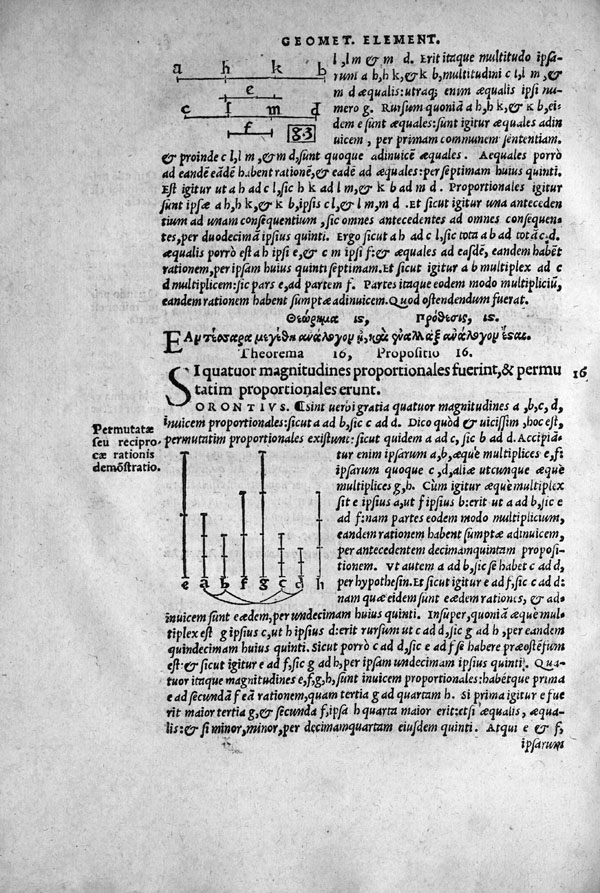 GEOMET. ELEMENT.
a h k b
e
c l m d
f g3
l, l m & m d. Erit itaque multitudo ipsa-
rum a h, h k, & k b, multitudini c l, l m, &
m d æqualis: utraq; enim æqualis ipsi nu-
mero g. Rursum quoniã a h, h k, & k b, ei-
dem e sunt æquales: sunt igitur æquales adin
uicem, per primam communem sententiam.
& proinde c l, l m, & m d, sunt quoque adinuicẽ æquales. Aequales porrò
ad eandẽ eãdẽ habent rationẽ, & eadẽ ad æquales: per septimam huius quinti.
Est igitur ut a h ad c l, sic h k ad l m, & k b ad m d. Proportionales igitur
sunt ipsæ a h, h k, & k b, ipsis c l, & l m, m d. Et sicut igitur una anteceden
tium ad unam consequentium, sic omnes antecedentes ad omnes consequen-
tes, per duodecimã ipsius quinti. Ergo sicut a h ad c l, sic tota a b ad totã c d.
æqualis porrò est a h ipsi e, & c m ipsi f: & æquales ad easdẽ, eandem habẽt
rationem, per ipsam huius quinti septimam. Et sicut igitur a b multiplex ad c
d multiplicem: sic pars e, ad partem f. Partes itaque eodem modo multipliciũ,
eandem rationem habent sumptæ adinuicem. Quod ostendendum fuerat.
Θεώρημα ις, Πρόθεσις, ις.
ΕΑν τέσσαρα μεγέθη ἀνάλογον ᾖ, καὶ ἐναλλὰξ ἀνάλογον ἔσται.
Theorema 16, Propositio 16.
SI quatuor magnitudines proportionales fuerint, & permu 16
tatim proportionales erunt.
ORONTIVS. ¶Sint uerbi gratia quatuor magnitudines a, b, c, d,
inuicem proportionales: sicut a ad b, sic c ad d. Dico quòd & uicissim, hoc est,
permutatim proportionales existunt: sicut quidem a ad c, sic b ad d. Accipiã-
Permutatæ
seu recipro-
cæ rationis
demõstratio.
tur enim ipsarum a, b, æquè multiplices e, f:
ipsarum quoque c, d, aliæ utcunque æquè
multiplices g, h. Cùm igitur æquè multiplex
sit e ipsius a, ut f ipsius b: erit ut a ad b, sic e
ad f: nam partes eodem modo multiplicium,
eandem rationem habent sumptæ adinuicem,
per antecedentem decimamquintam proposi-
tionem. Vt autem a ad b, sic se habet c ad d,
per hypothesin. Et sicut igitur e ad f, sic c ad d:
nam quæ eidem sunt eædem rationes, & ad-
e a b f g c d h
inuicem sunt eædem, per undecimam huius quinti. Insuper, quoniã æquè mul-
tiplex est g ipsius c, ut h ipsius d: erit rursum ut c ad d, sic g ad h, per eandem
quindecimam huius quinti. Sicut porrò c ad d, sic e ad f se habere præostẽsum
est: & sicut igitur e ad f, sic g ad h, per ipsam undecimam ipsius quinti. Qua-
tuor itaque magnitudines e, f, g, h, sunt inuicem proportionales: habẽtque prima
e ad secundã f eã rationem, quam tertia g ad quartam h. Si prima igitur e fue
rit maior tertia g, & secunda f, ipsa h quarta maior erit: etsi æqualis, æqua-
lis: & si minor, minor, per decimamquartam eiusdem quinti. Atqui e & f,
ipsarum